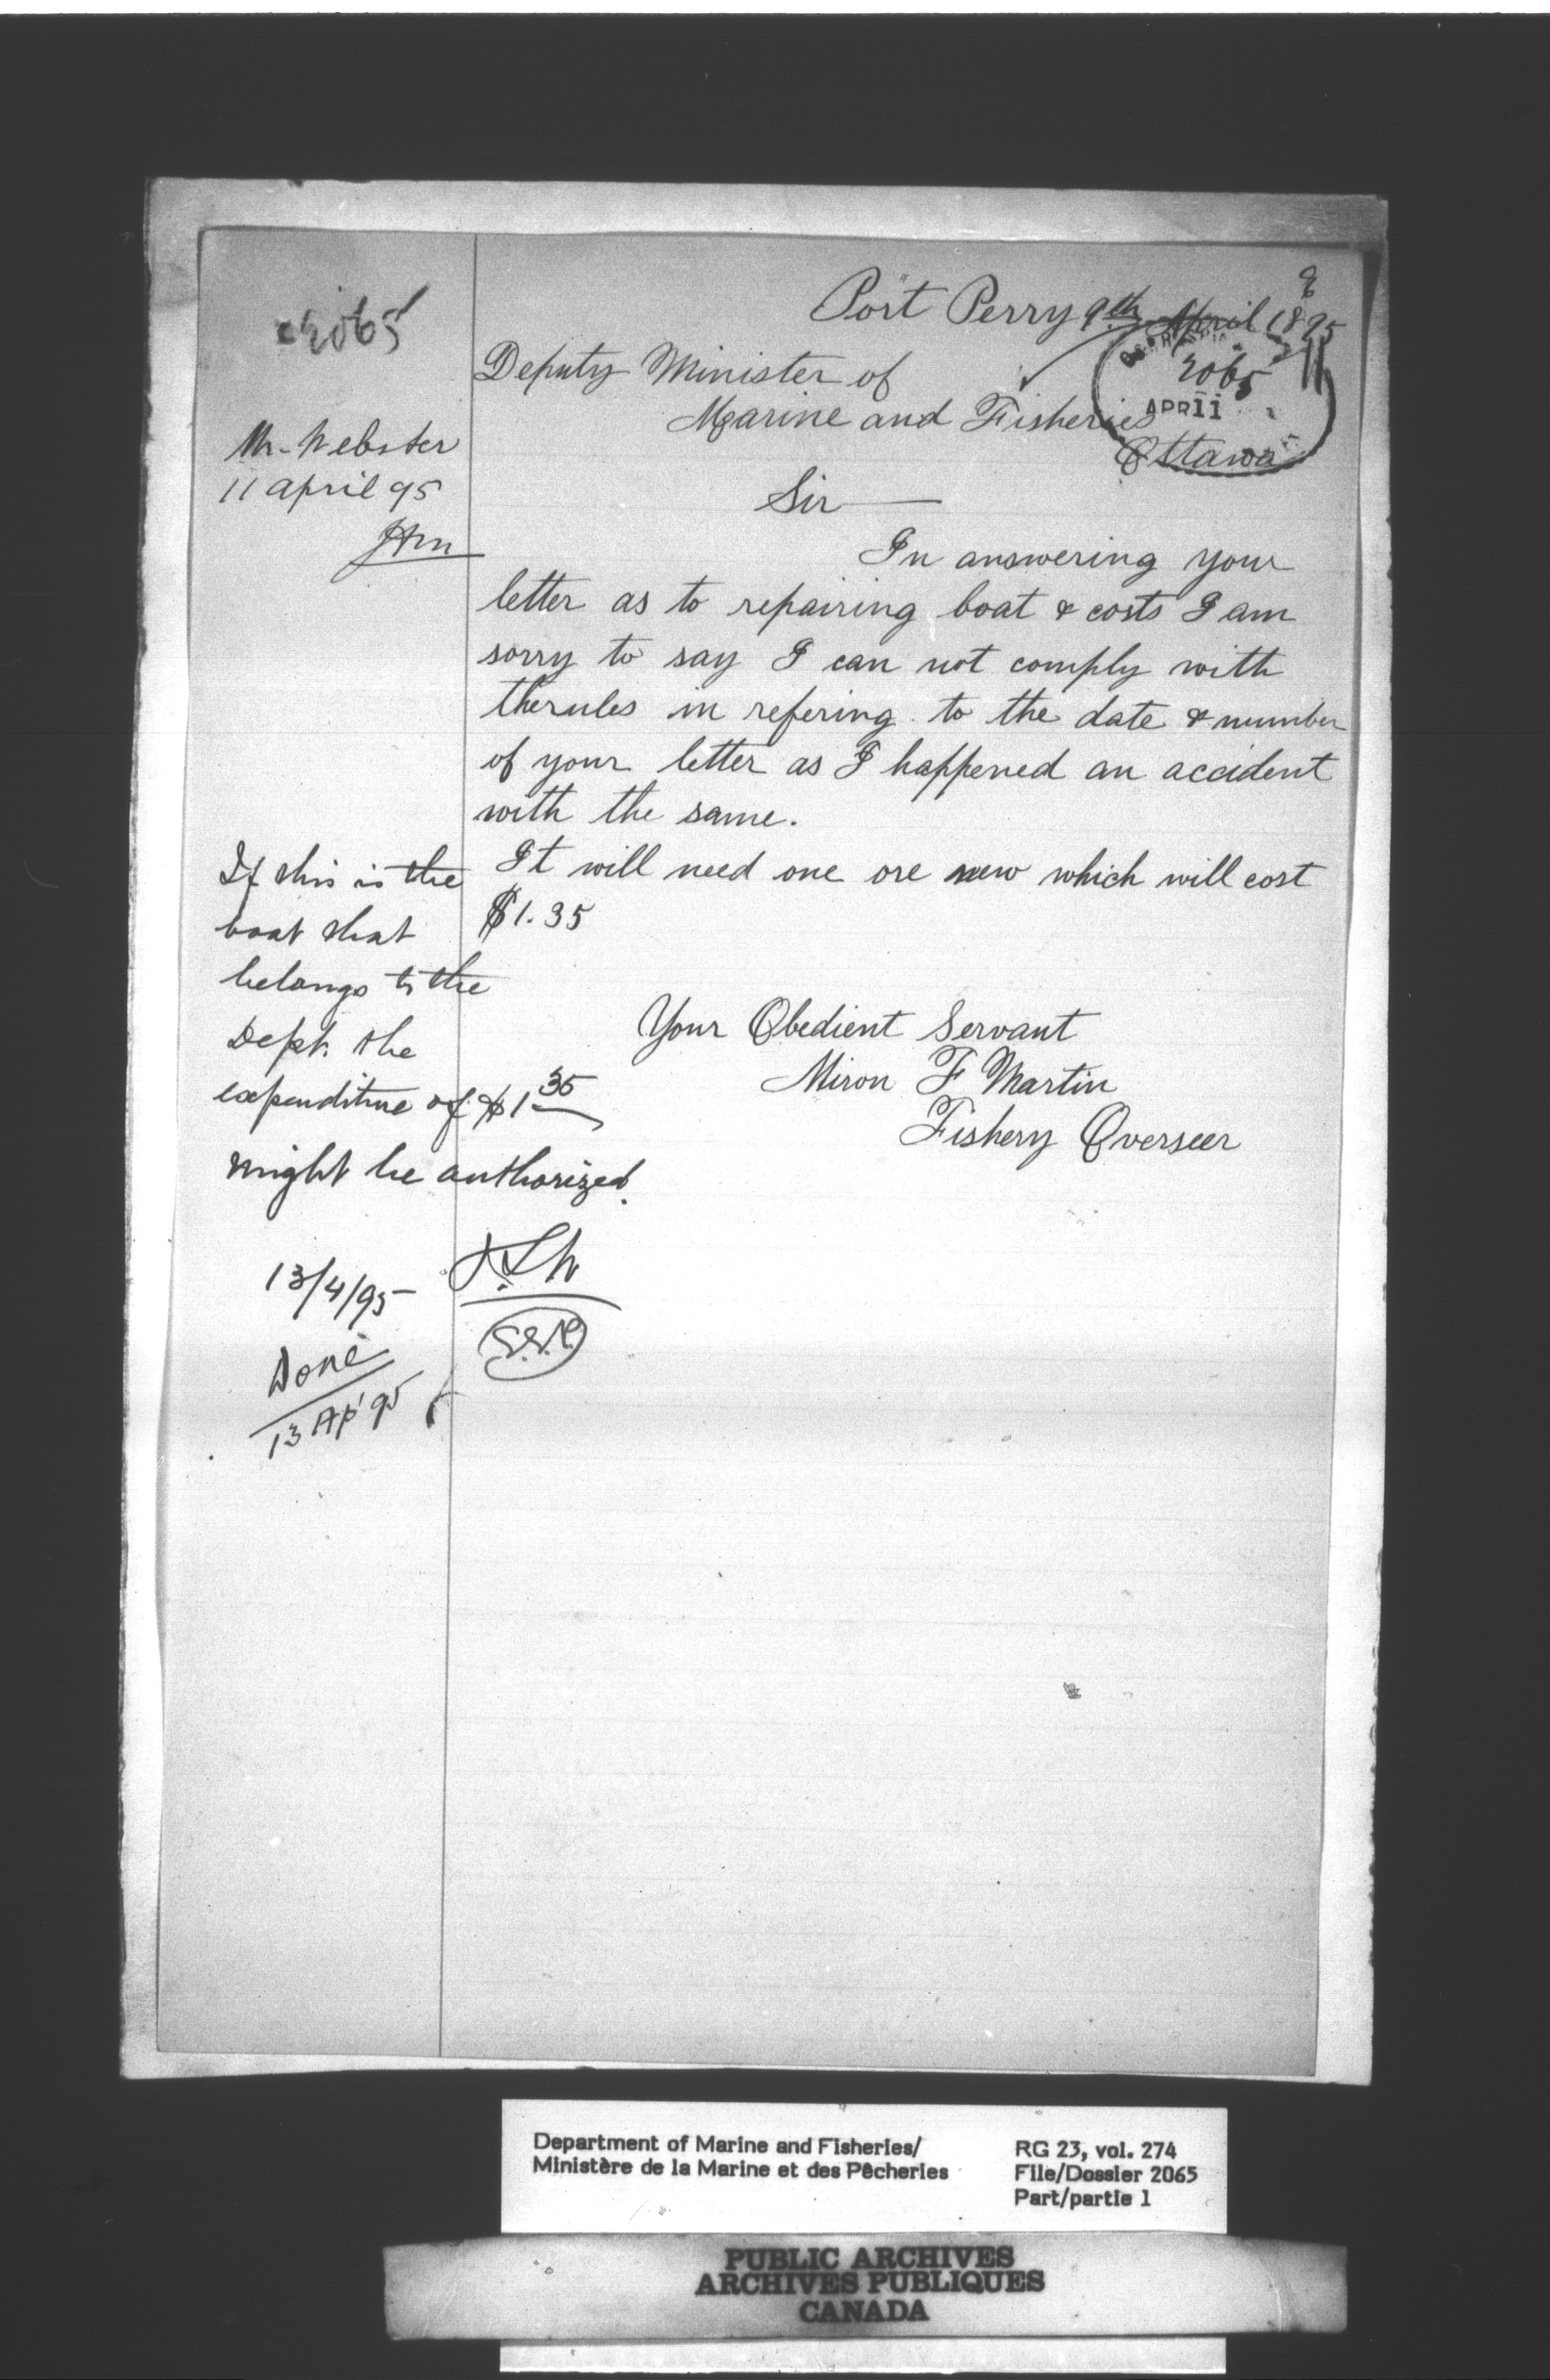 2065
Port Perry 9th April 1895
2065
APR 11
11
Deputy Minister of
Marine and Fisheries
Ottawa
Mr. Webster
11 april 95
Sir
In answering your
letter as to repairing boat & costs I am
sorry to say I can not comply with
therules in refering to the date & number
of your letter as I happened an accident
with the same.
It will need one ore new which will cost
$1.35
Your Obedient Servant
Miron F Martin
Fishery Overseer
If this is the
boat that
belongs to the
Dept. the
expenditure of $1 35
might be authorized.
13/4/95
Done
13 Ap' 95
Department of Marine and Fisheries/
Ministère de la Marine et des Pêcheries
RG 23, vol. 274
File/Dossier 2065
Part/partie 1
PUBLIC ARCHIVES
ARCHIVES PUBLIQUES
CANADA